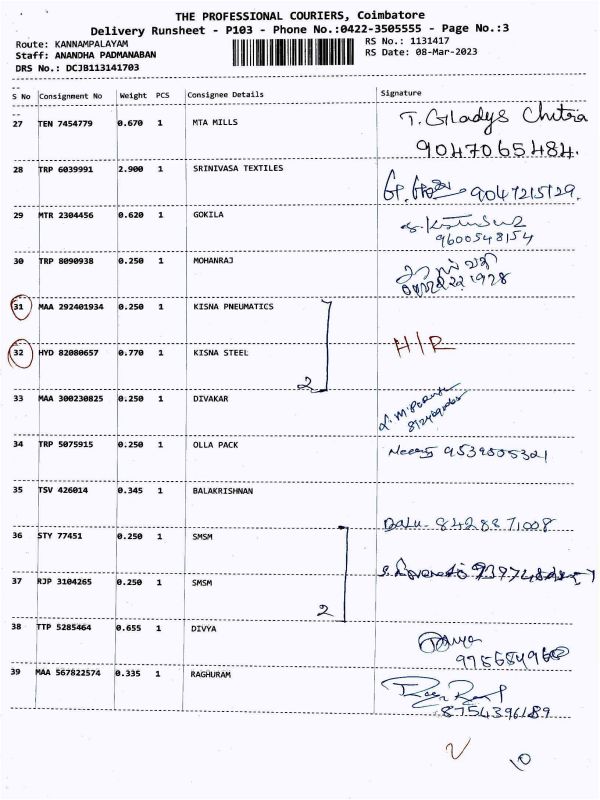 THE PROFESSIONAL COURIERS, Coimbatore
Delivery Runsheet - P103 - Phone No.:0422-3505555 - Page No.:3
Route: KANNAMPALAYAM
RS No.: 1131417
Staff: ANANDHA PADMANABAN
RS Date: 08-Mar-2023
DRS No.: DCJB113141703
S No Consignment No Weight PCS Consignee Details Signature
27 TEN 7454779 0.670 1 MTA MILLS T. Gladys Chitra
9047065484.
28 TRP 6039991 2.900 1 SRINIVASA TEXTILES
9047215129.
29 MTR 2304456 0.620 1 GOKILA
9600548154
30 TRP 8090938 0.250 1 MOHANRAJ
31 MAA 292401934 0.250 1 KISNA PNEUMATICS
32 HYD 82080657 0.770 1 KISNA STEEL H/R
2
33 MAA 300230825 0.250 1 DIVAKAR
34 TRP 5075915 0.250 1 OLLA PACK
35 TSV 426014 0.345 1 BALAKRISHNAN
Balu- 8428871008
36 STY 77451 0.250 1 SMSM
37 RJP 3104265 0.250 1 SMSM
2
38 TTP 5285464 0.655 1 DIVYA
39 MAA 567822574 0.335 1 RAGHURAM
8754396189
10